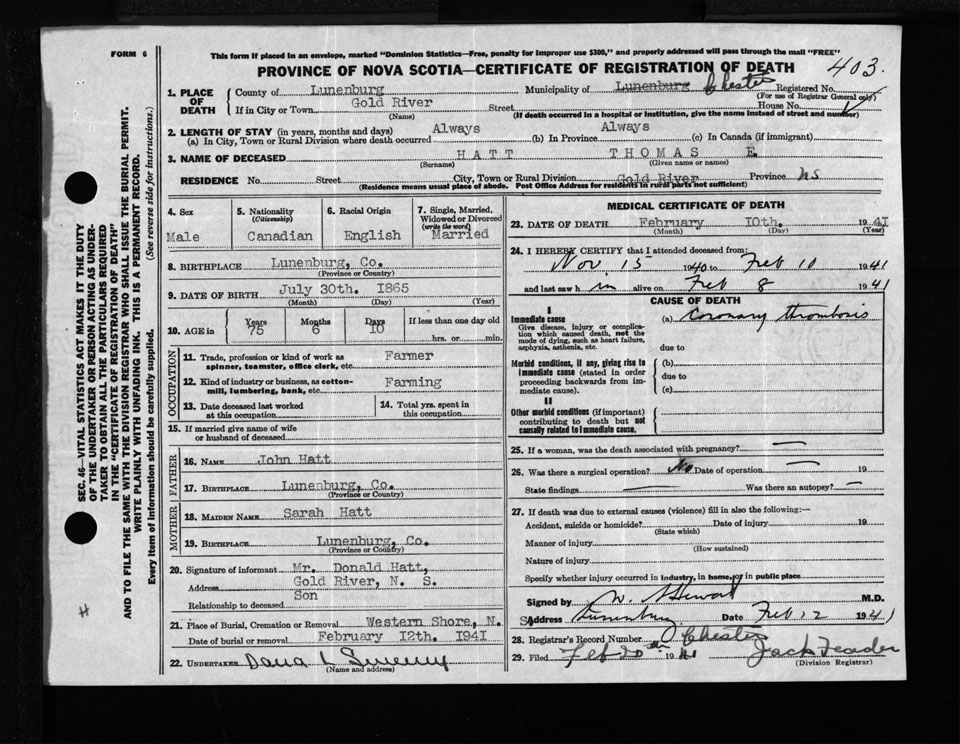 FORM 6
This form if placed in an envelope, marked "Dominion Statistics—Free, penalty for improper use $300," and properly addressed will pass through the mail "FREE"
PROVINCE OF NOVA SCOTIA—CERTIFICATE OF REGISTRATION OF DEATH
403.
1. PLACE OF DEATH
County of Lunenburg
Municipality of Lunenburg Chester
Registered No.
(For use of Registrar General only)
If in City or Town Gold River
(Name)
Street
House No.
(If death occurred in a hospital or institution, give the name instead of street and number)
2. LENGTH OF STAY (in years, months and days)
(a) In City, Town or Rural Division where death occurred Always
(b) In Province Always
(c) In Canada (if immigrant)
3. NAME OF DECEASED HATT THOMAS E.
(Surname) (Given name or names)
RESIDENCE No. Street City, Town or Rural Division Gold River Province NS
(Residence means usual place of abode. Post Office Address for residents in rural parts not sufficient)
4. Sex
Male
5. Nationality
(Citizenship)
Canadian
6. Racial Origin
English
7. Single, Married, Widowed or Divorced
(write the word)
Married
8. BIRTHPLACE Lunenburg, Co.
(Province or Country)
9. DATE OF BIRTH July 30th. 1865
(Month) (Day) (Year)
10. AGE in
Years 75
Months 6
Days 10
If less than one day old
hrs. or min.
OCCUPATION
11. Trade, profession or kind of work as spinner, teamster, office clerk, etc. Farmer
12. Kind of industry or business, as cotton-mill, lumbering, bank, etc. Farming
13. Date deceased last worked at this occupation
14. Total yrs. spent in this occupation
15. If married give name of wife or husband of deceased
FATHER
16. NAME John Hatt
17. BIRTHPLACE Lunenburg, Co.
(Province or Country)
MOTHER
18. MAIDEN NAME Sarah Hatt
19. BIRTHPLACE Lunenburg, Co.
(Province or Country)
20. Signature of informant Mr. Donald Hatt,
Address Gold River, N. S.
Relationship to deceased Son
21. Place of Burial, Cremation or Removal Western Shore, N. S
Date of burial or removal February 12th. 1941
22. UNDERTAKER Dana L Sweeny
(Name and address)
MEDICAL CERTIFICATE OF DEATH
23. DATE OF DEATH February 10th. 1941
(Month) (Day) (Year)
24. I HEREBY CERTIFY that I attended deceased from:
Nov. 15 1940 to Feb 10 1941
and last saw h im alive on Feb 8 1941
CAUSE OF DEATH
I
Immediate cause
Give disease, injury or complication which caused death, not the mode of dying, such as heart failure, asphyxia, asthenia, etc.
(a) Coronary thrombosis
due to
Morbid conditions, if any, giving rise to immediate cause (stated in order proceeding backwards from immediate cause).
(b)
due to
(c)
II
Other morbid conditions (if important) contributing to death but not causally related to immediate cause.
25. If a woman, was the death associated with pregnancy?
26. Was there a surgical operation? No Date of operation 19
State findings Was there an autopsy?
27. If death was due to external causes (violence) fill in also the following:—
Accident, suicide or homicide? Date of injury 19
(State which)
Manner of injury
(How sustained)
Nature of injury
Specify whether injury occurred in industry, in home, or in public place
Signed by W. A Hewat M.D.
Address Lunenburg Date Feb 12 1941
28. Registrar's Record Number Chester
29. Filed Feb 20th 1941 Jack Feader
(Division Registrar)
SEC. 46—VITAL STATISTICS ACT MAKES IT THE DUTY
OF THE UNDERTAKER OR PERSON ACTING AS UNDER-
TAKER TO OBTAIN ALL THE PARTICULARS REQUIRED
IN THE "CERTIFICATE OF REGISTRATION OF DEATH"
AND TO FILE THE SAME WITH THE DIVISION REGISTRAR WHO SHALL ISSUE THE BURIAL PERMIT.
WRITE PLAINLY WITH UNFADING INK. THIS IS A PERMANENT RECORD.
Every item of information should be carefully supplied. (See reverse side for instructions.)
H